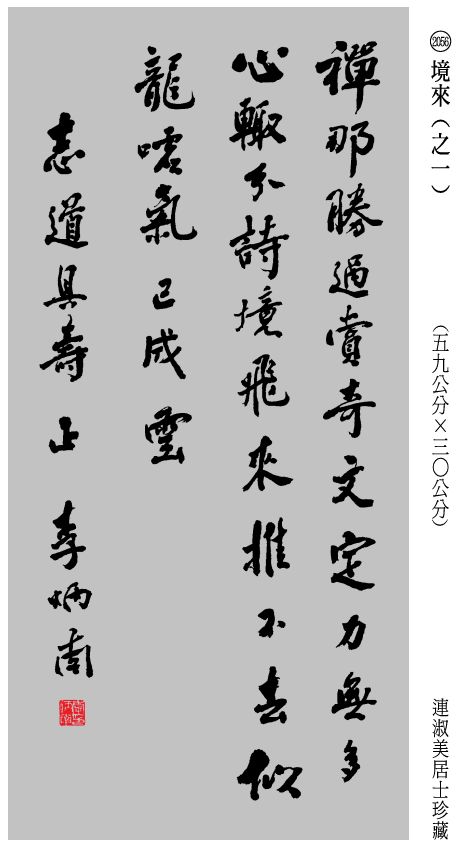 2056 境來（之一）
（五九公分×三〇公分）
連淑美居士珍藏
禪那勝過賞奇文定力無多
心輙分詩境飛來推不去似
龍噓氣已成雲
志道具壽正 李炳南